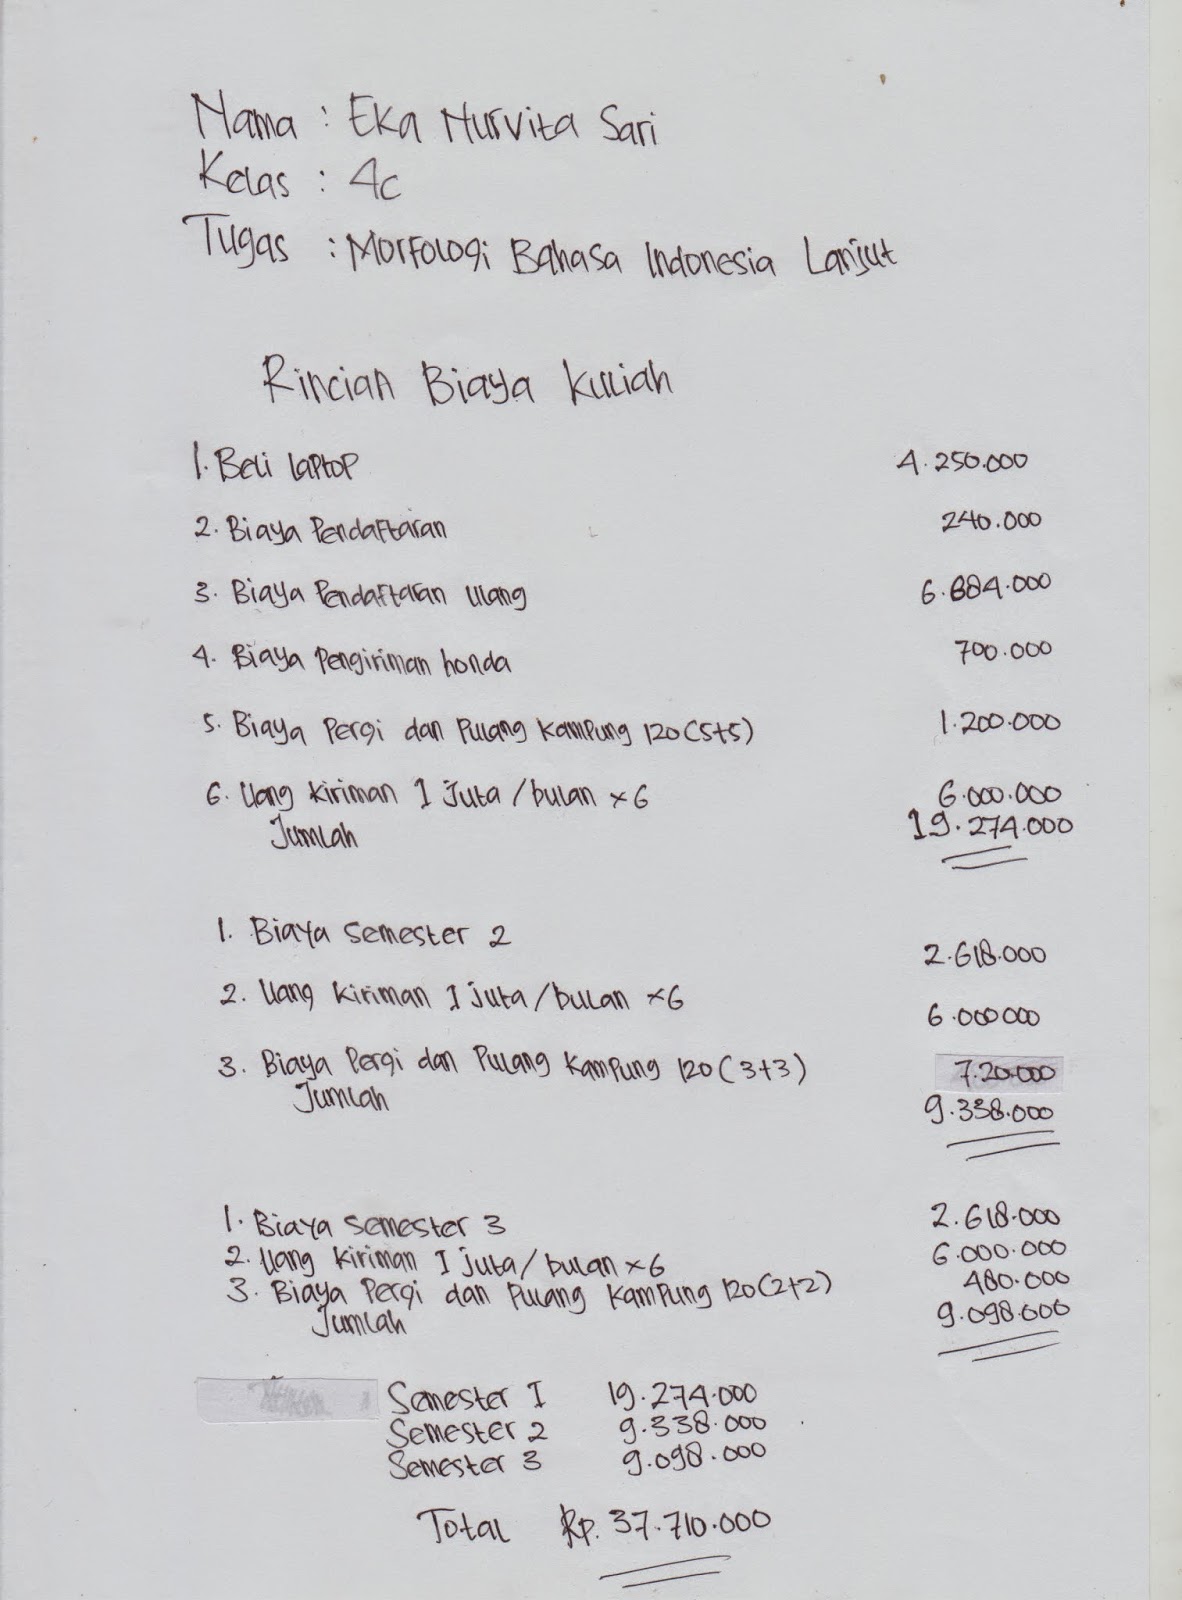 Nama : Eka Nurvita Sari
Kelas : 4c
Tugas : Morfologi Bahasa Indonesia Lanjut
Rincian Biaya Kuliah
1. Beli laptop 4.250.000
2. Biaya Pendaftaran 240.000
3. Biaya Pendaftaran Ulang 6.884.000
4. Biaya Pengiriman honda 700.000
5. Biaya Pergi dan Pulang Kampung 120(5+5) 1.200.000
6. Uang Kiriman 1 Juta/bulan ×6 6.000.000
Jumlah 19.274.000
1. Biaya Semester 2 2.618.000
2. Uang Kiriman 1 juta/bulan ×6 6.000000
3. Biaya Pergi dan Pulang Kampung 120(3+3) 7.20.000
Jumlah 9.338.000
1. Biaya Semester 3 2.618.000
2. Uang Kiriman 1 juta/bulan ×6 6.000.000
3. Biaya Pergi dan Pulang Kampung 120(2+2) 480.000
Jumlah 9.098.000
Semester I 19.274.000
Semester 2 9.338.000
Semester 3 9.098.000
Total Rp. 37.710.000